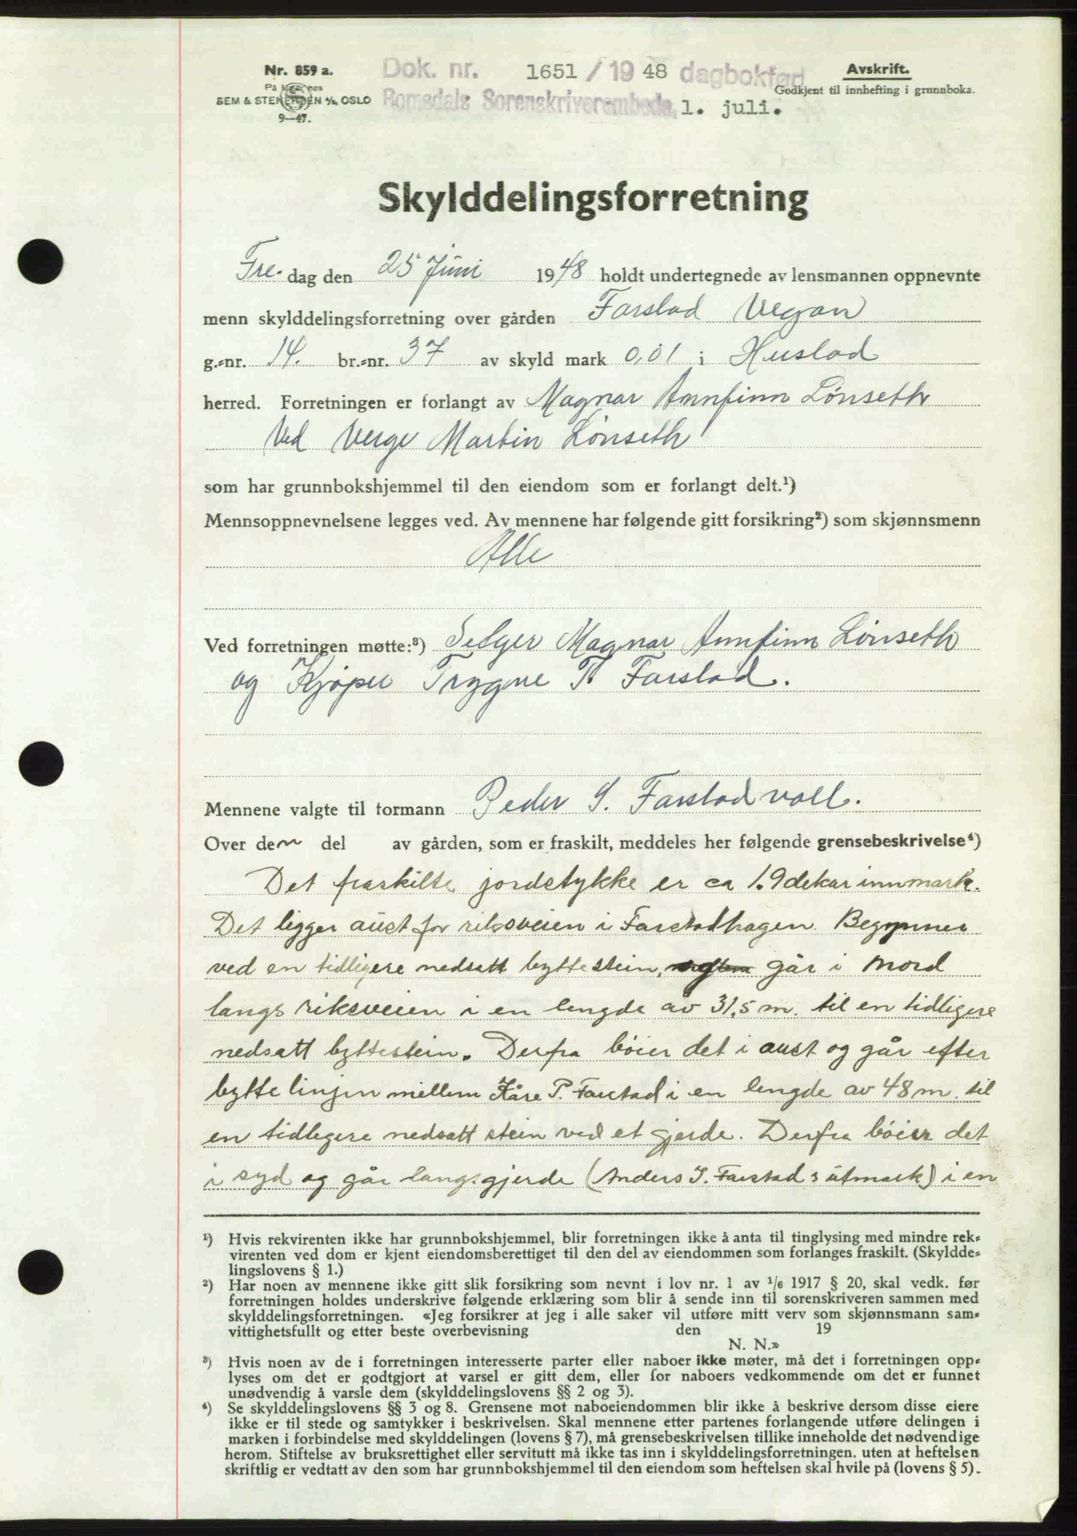 Nr. 859 a.
På lager hos
SEM & STENERSEN A/S, OSLO
9—47.
Dok. nr. 1651 / 19 48 dagbokført
Romsdals Sorenskriverembede, 1. juli.
Avskrift.
Godkjent til innhefting i grunnboka.
Skylddelingsforretning
Fre- dag den 25 Juni 1948 holdt undertegnede av lensmannen oppnevnte
menn skylddelingsforretning over gården Farstad Vegan
g.-nr. 14. br.-nr. 37 av skyld mark 0,01 i Hustad
herred. Forretningen er forlangt av Magnar Annfinn Lønseth
Ved Verge Martin Lønseth
som har grunnbokshjemmel til den eiendom som er forlangt delt.¹)
Mennsoppnevnelsene legges ved. Av mennene har følgende gitt forsikring²) som skjønnsmenn
Alle
Ved forretningen møtte:³) Selger Magnar Annfinn Lönseth
og Kjøper Trygve P. Farstad.
Mennene valgte til formann Peder S. Farstadvoll.
Over den del av gården, som er fraskilt, meddeles her følgende grensebeskrivelse⁴)
Det fraskilte jordstykke er ca 1.9 dekar innmark.
Det ligger aust for riksveien i Farstadhagen. Begynner
ved en tidligere nedsatt byttestein, går i Nord
langs riksveien i en lengde av 31,5 m. til en tidligere
nedsatt byttestein. Derfra bøier det i aust og går efter
byttelinjen mellem Kåre P. Farstad i en lengde av 48 m. til
en tidligere nedsatt stein ved et gjerde. Derfra bøier det
i syd og går langs gjerde (Anders J. Farstad s utmark) i en
¹) Hvis rekvirenten ikke har grunnbokshjemmel, blir forretningen ikke å anta til tinglysing med mindre rek-
virenten ved dom er kjent eiendomsberettiget til den del av eiendommen som forlanges fraskilt. (Skyldde-
lingslovens § 1.)
²) Har noen av mennene ikke gitt slik forsikring som nevnt i lov nr. 1 av 1/6 1917 § 20, skal vedk. før
forretningen holdes underskrive følgende erklæring som blir å sende inn til sorenskriveren sammen med
skylddelingsforretningen. «Jeg forsikrer at jeg i alle saker vil utføre mitt verv som skjønnsmann sam-
vittighetsfullt og etter beste overbevisning den 19
N. N.»
³) Hvis noen av de i forretningen interesserte parter eller naboer ikke møter, må det i forretningen opp-
lyses om det er godtgjort at varsel er gitt dem, eller for naboers vedkommende om det er funnet
unødvendig å varsle dem (skylddelingslovens §§ 2 og 3).
⁴) Se skylddelingslovens §§ 3 og 8. Grensene mot naboeiendommen blir ikke å beskrive dersom disse eiere
ikke er til stede og samtykker i beskrivelsen. Skal mennene etter partenes forlangende utføre delingen i
marken i forbindelse med skylddelingen (lovens § 7), må grensebeskrivelsen tillike inneholde det nødvendige
herom. Stiftelse av bruksrettighet eller servitutt må ikke tas inn i skylddelingsforretningen, uten at heftelsen
skriftlig er vedtatt av den som har grunnbokshjemmel til den eiendom som heftelsen skal hvile på (lovens § 5).